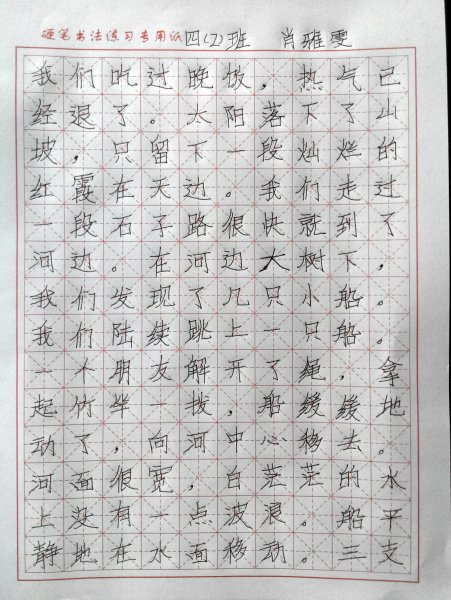 硬笔书法练习专用纸 四(2)班 肖雅雯
我们吃过晚饭，热气已
经退了。太阳落下了山
坡，只留下一段灿烂的
红霞在天边。我们走过
一段石子路很快就到了
河边。在河边大树下，
我们发现了几只小船。
我们陆续跳上一只船。
一个朋友解开了绳，拿
起竹竿一拨，船缓缓地
动了，向河中心移去。
河面很宽，白茫茫的水
上没有一点波浪。船平
静地在水面移动。三支